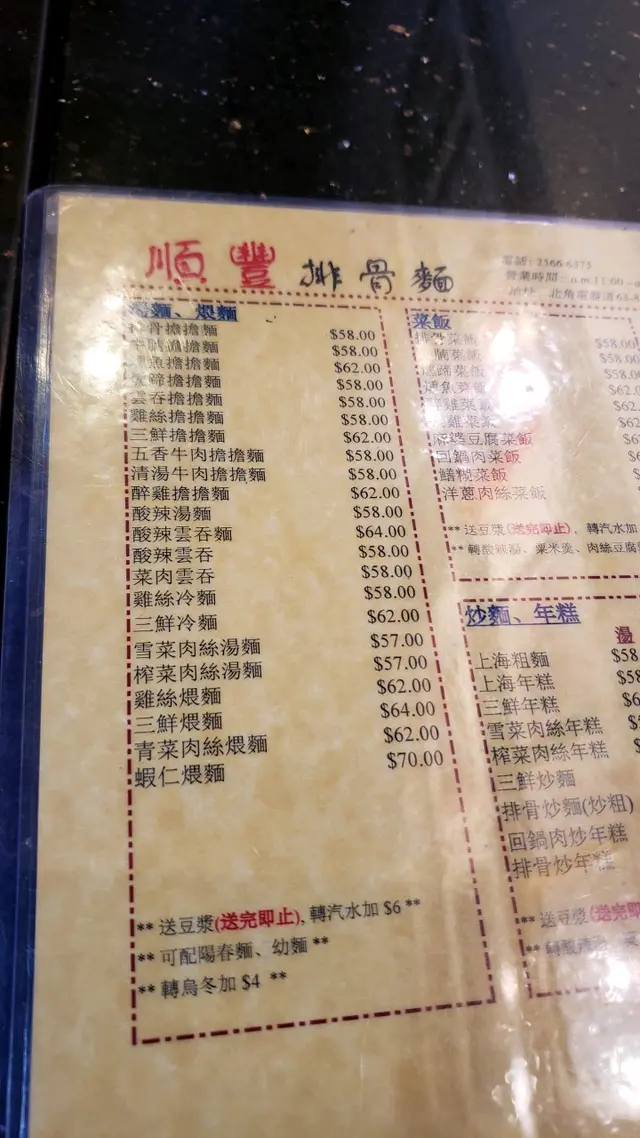 順豐 排骨麵
電話: 2566 6575
營業時間: a.m.11:00
地址: 北角電器道
湯麵、煨麵
排骨擔擔麵 $58.00
牛腩擔擔麵 $58.00
燻魚擔擔麵 $62.00
元蹄擔擔麵 $58.00
雲吞擔擔麵 $58.00
雞絲擔擔麵 $58.00
三鮮擔擔麵 $62.00
五香牛肉擔擔麵 $58.00
清湯牛肉擔擔麵 $58.00
醉雞擔擔麵 $62.00
酸辣湯麵 $58.00
酸辣雲吞麵 $64.00
酸辣雲吞 $58.00
菜肉雲吞 $58.00
雞絲冷麵 $58.00
三鮮冷麵 $62.00
雪菜肉絲湯麵 $57.00
榨菜肉絲湯麵 $57.00
雞絲煨麵 $62.00
三鮮煨麵 $64.00
青菜肉絲煨麵 $62.00
蝦仁煨麵 $70.00
** 送豆漿(送完即止), 轉汽水加 $6 **
** 可配陽春麵、幼麵 **
** 轉烏冬加 $4 **
菜飯
排骨菜飯 $58.00
腩菜飯 $58.00
蹄菜飯 $58.0
魚菜飯 $62.
雞菜飯 $62
麻婆豆腐菜飯
回鍋肉菜飯
鱔糊菜飯
洋蔥肉絲菜飯
** 送豆漿(送完即止), 轉汽水加
** 轉酸辣湯、粟米羹、肉絲豆腐
炒麵、年糕
湯
上海粗麵 $58
上海年糕 $58
三鮮年糕
雪菜肉絲年糕
榨菜肉絲年糕
三鮮炒麵
排骨炒麵(炒粗)
回鍋肉炒年糕
排骨炒年糕
** 送豆漿(送完即
** 轉酸辣湯